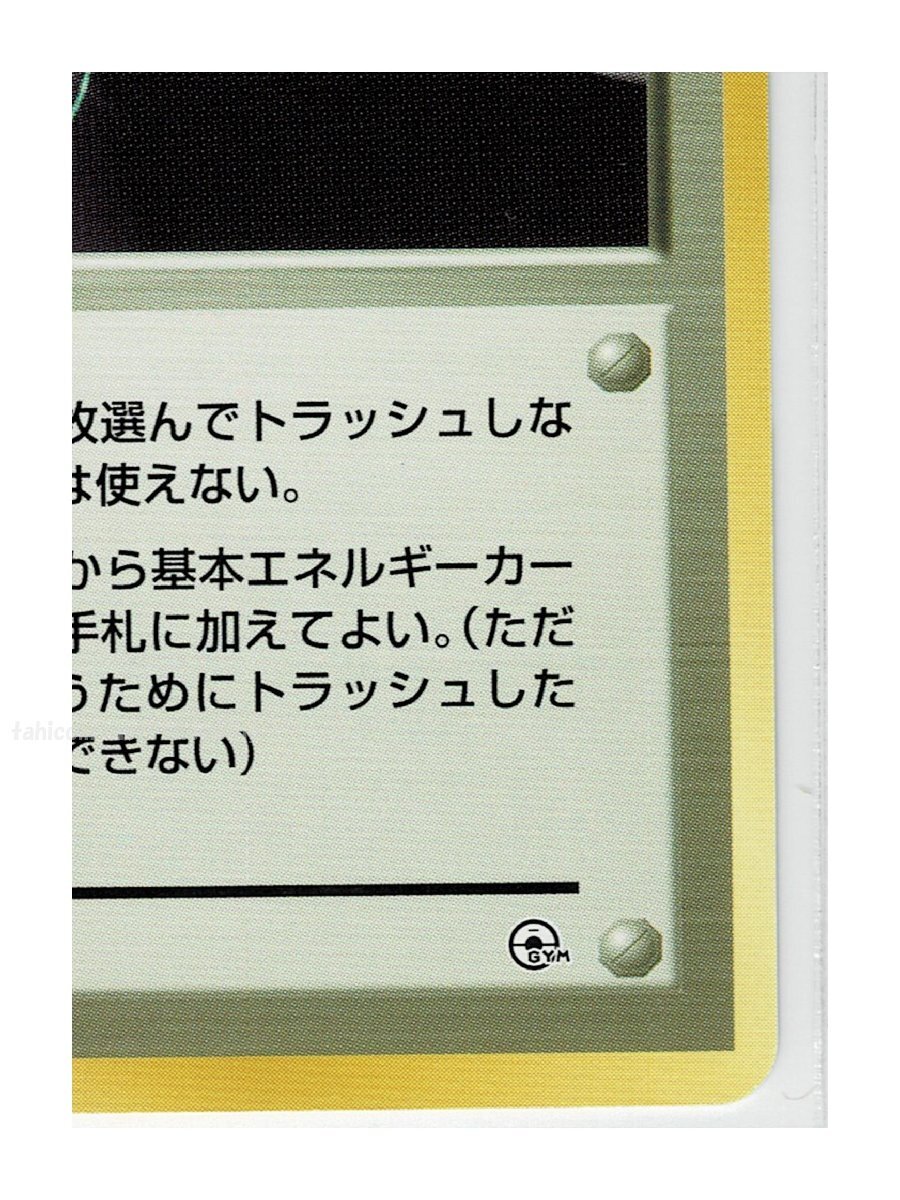 選んでトラッシュしな
は使えない。
から基本エネルギーカー
手札に加えてよい。(ただ
うためにトラッシュした
できない)
GYM